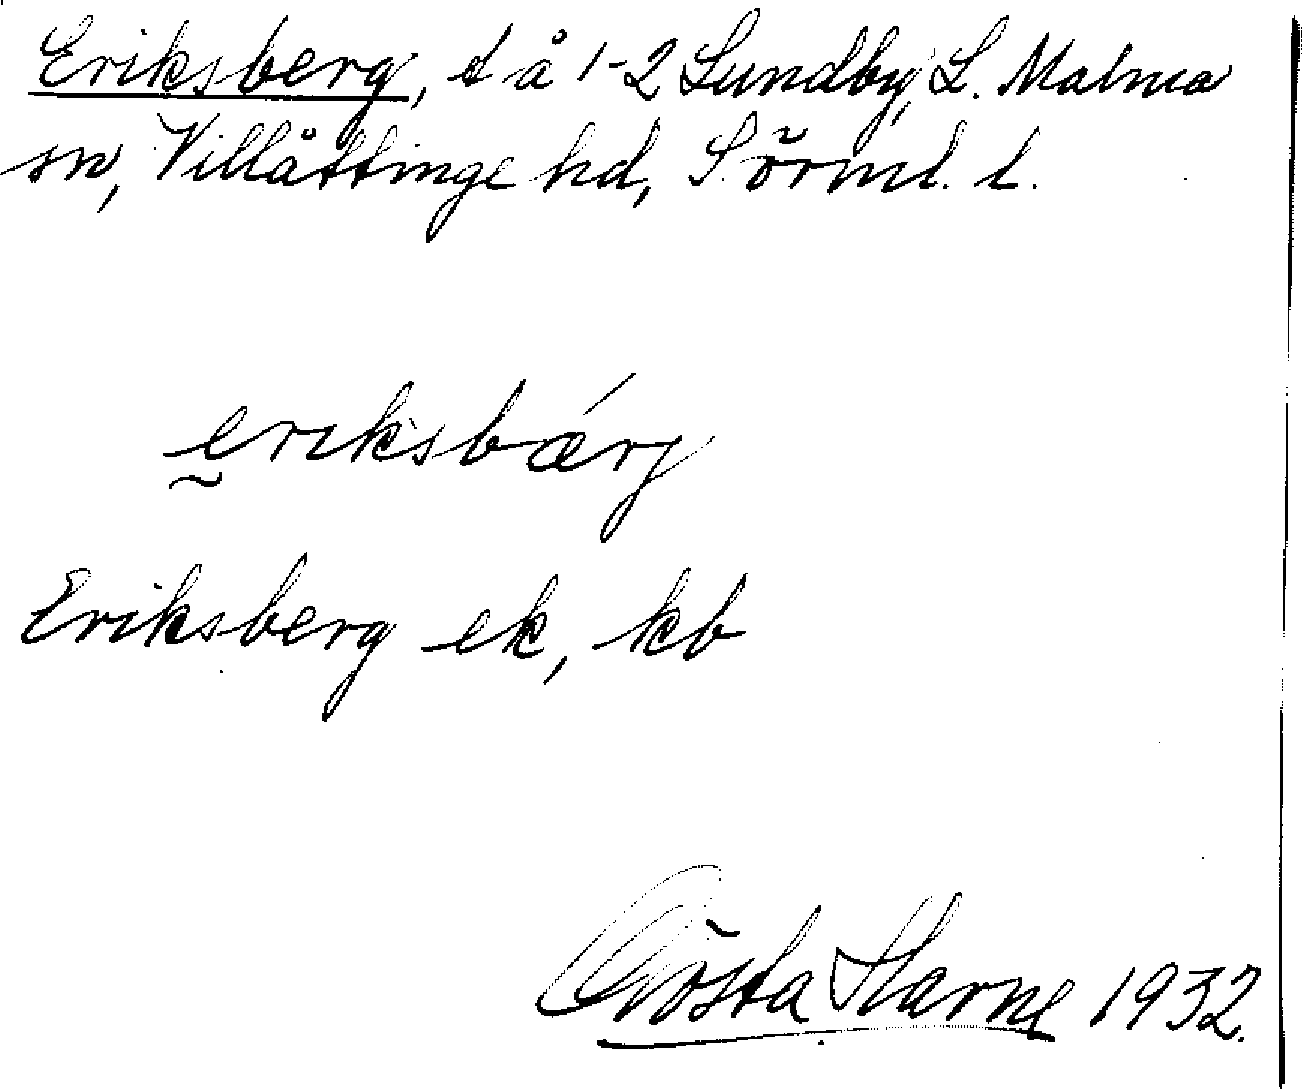 Eriksberg, t å 1-2 Lundby, L. Malma
sn, Villåttinge hd, Sörml. l.
eriksbærj
Eriksberg ek, kb
Gösta 1932.